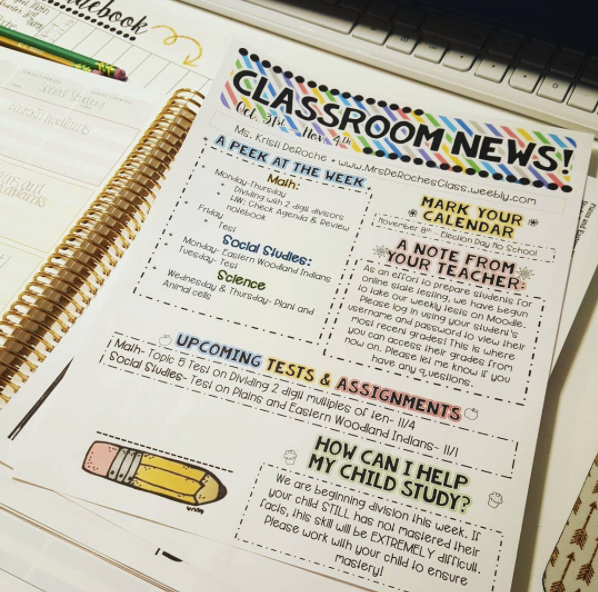 debook
Social Studies
CLASSROOM NEWS!
Oct. 31st - Nov. 4th
Ms. Kristi DeRoche • www.MrsDeRochesClass.weebly.com
A PEEK AT THE WEEK
Math:
Monday-Thursday
Dividing with 2 digit divisors
HW: Check Agenda & Review
notebook
Friday
Test
Social Studies:
Monday- Eastern Woodland Indians
Tuesday- Test
Science
Wednesday & Thursday- Plant and
Animal cells
MARK YOUR
CALENDAR
November 8th - Election Day No School
A NOTE FROM
YOUR TEACHER:
As an effort to prepare students for
online state testing, we have begun
to take our weekly tests on Moodle.
Please log in using your student's
username and password to view their
most recent grades! This is where
you can access their grades from
now on. Please let me know if you
have any questions.
UPCOMING TESTS & ASSIGNMENTS
Math- Topic 5 Test on Dividing 2 digit multiples of ten- 11/4
Social Studies- Test on Plains and Eastern Woodland Indians- 11/1
HOW CAN I HELP
MY CHILD STUDY?
We are beginning division this week. If
your child STILL has not mastered their
facts, this skill will be EXTREMELY difficult.
Please work with your child to ensure
mastery!